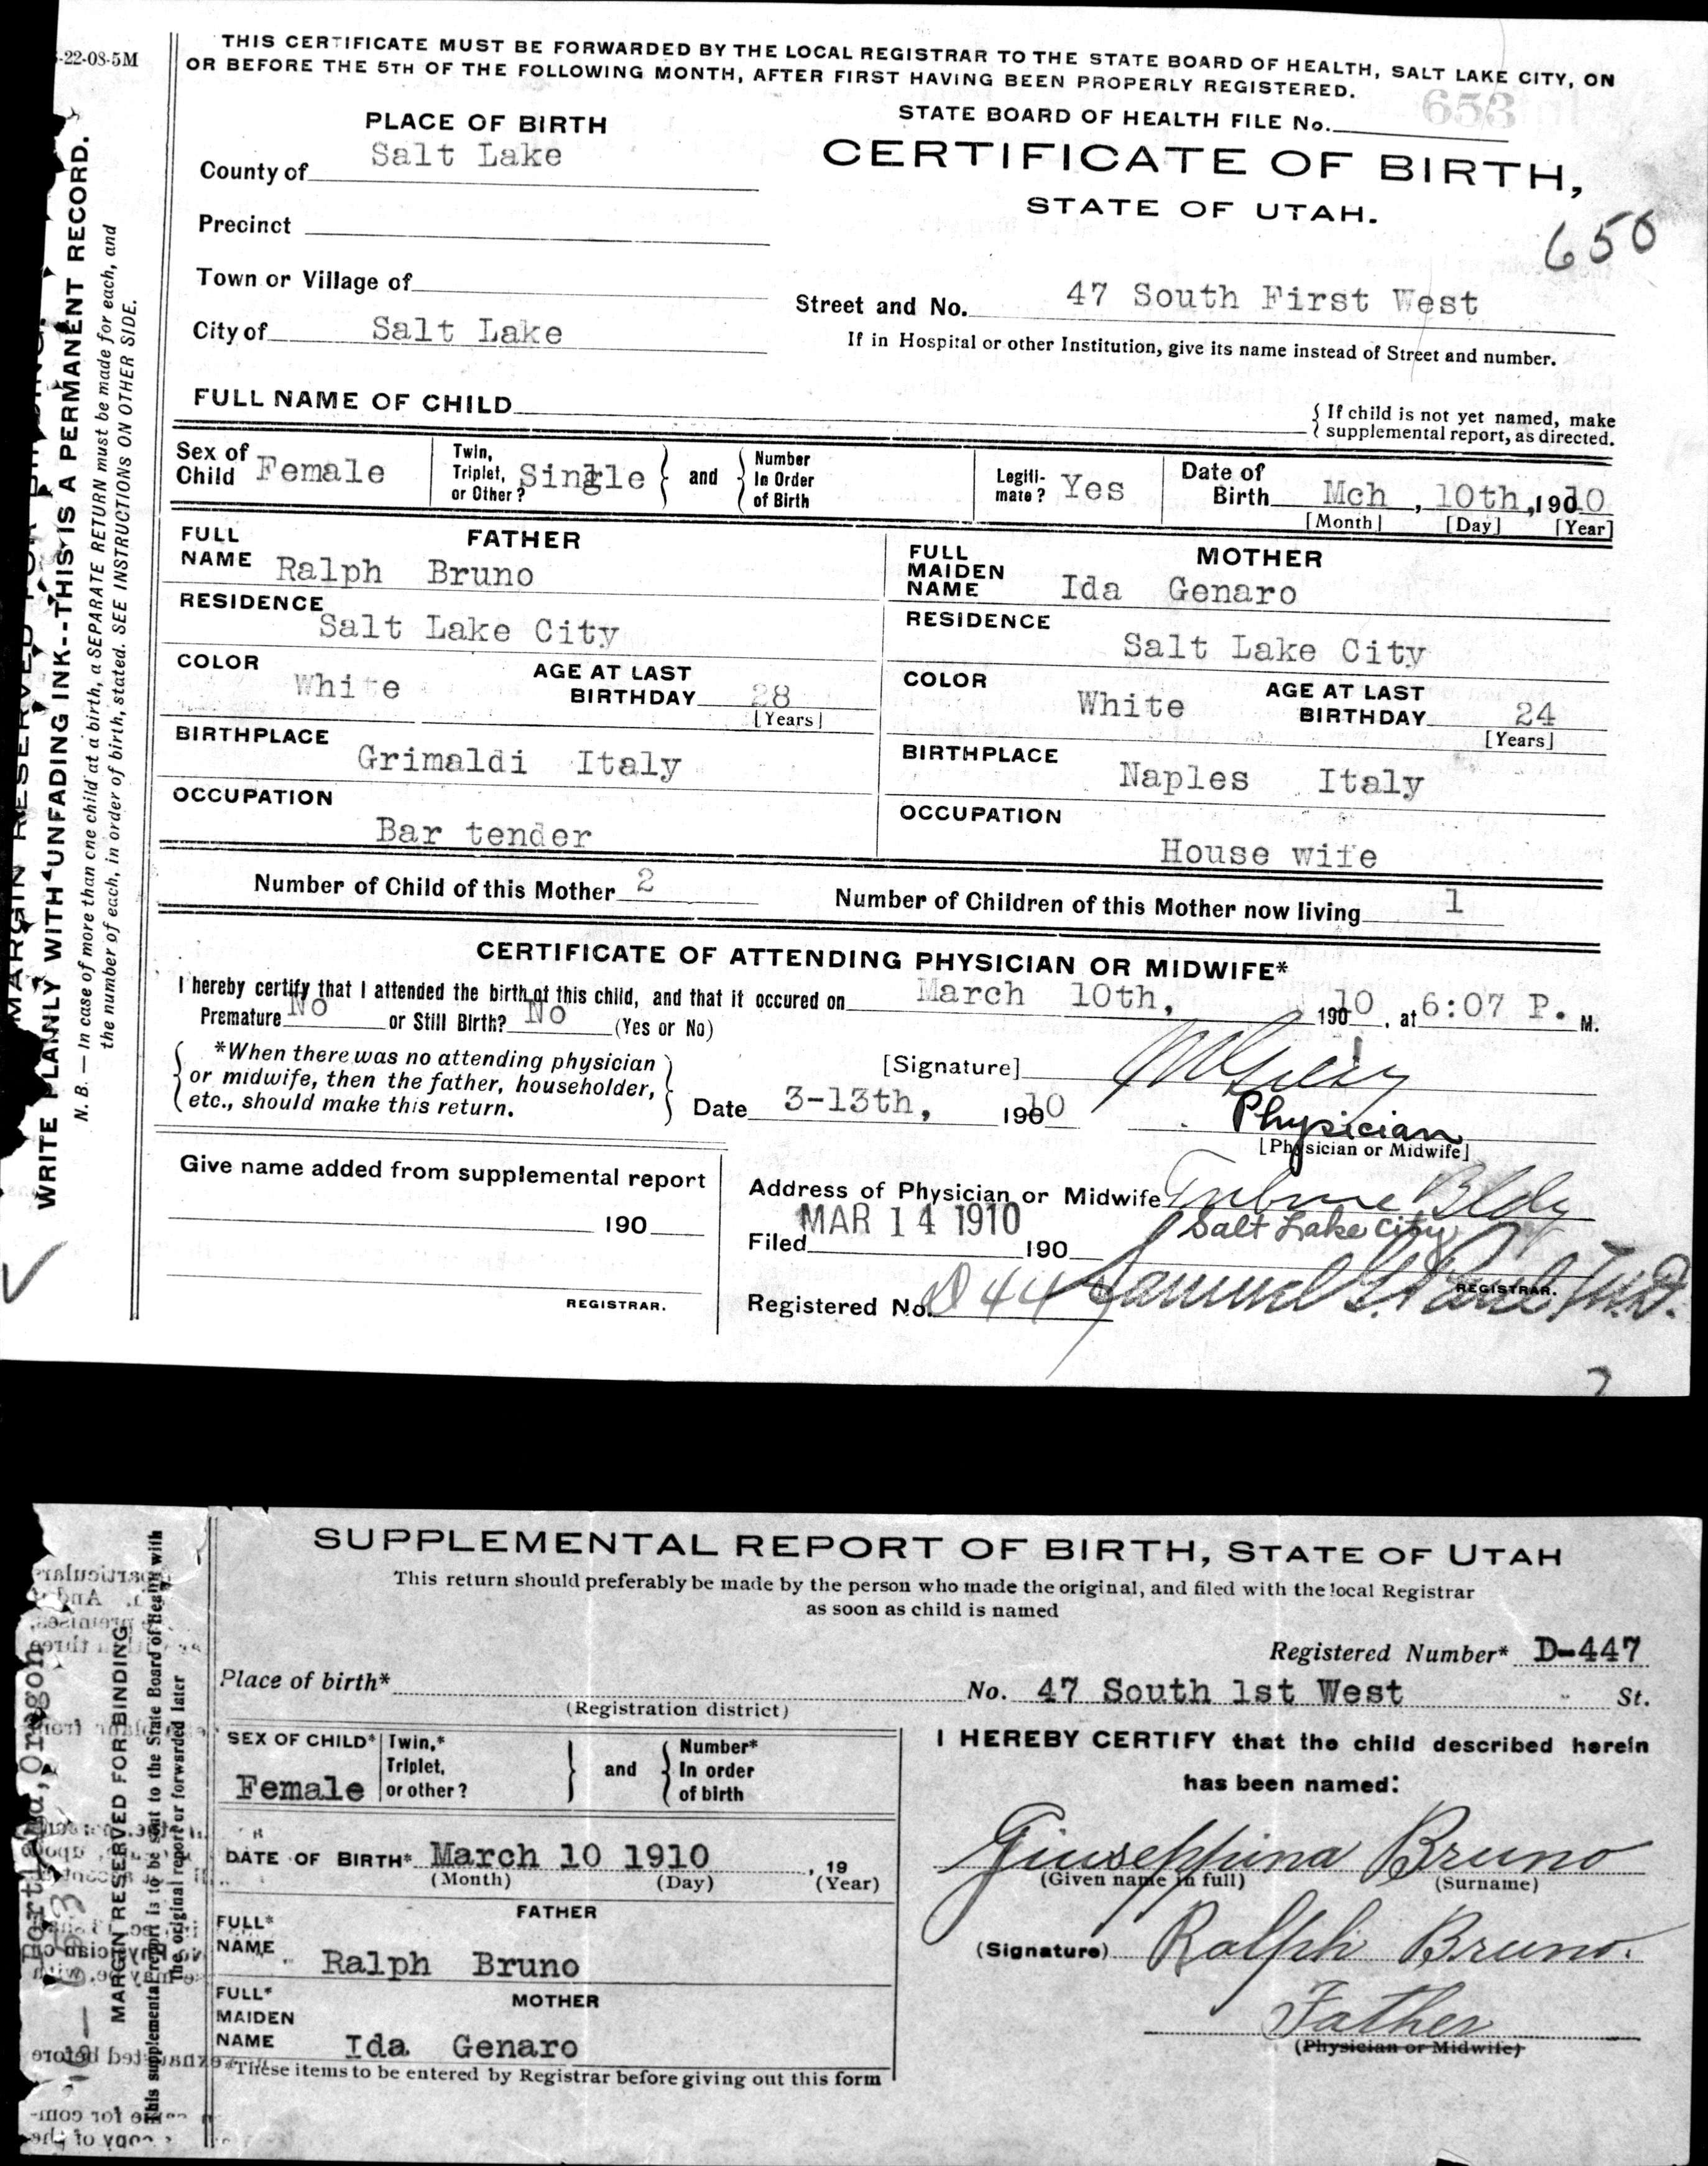 -22-08-5M
THIS CERTIFICATE MUST BE FORWARDED BY THE LOCAL REGISTRAR TO THE STATE BOARD OF HEALTH, SALT LAKE CITY, ON
OR BEFORE THE 5TH OF THE FOLLOWING MONTH, AFTER FIRST HAVING BEEN PROPERLY REGISTERED.
653
STATE BOARD OF HEALTH FILE No.
PLACE OF BIRTH
CERTIFICATE OF BIRTH,
STATE OF UTAH.
County of Salt Lake
650
Precinct
Town or Village of
Street and No. 47 South First West
City of Salt Lake
If in Hospital or other Institution, give its name instead of Street and number.
FULL NAME OF CHILD
{ If child is not yet named, make
supplemental report, as directed.
Sex of Child Female
Twin, Triplet, or Other? Single } and { Number In Order of Birth
Legiti-mate? Yes
Date of Birth Mch , 10th , 19010
[Month] [Day] [Year]
FATHER
FULL NAME Ralph Bruno
RESIDENCE Salt Lake City
COLOR White AGE AT LAST BIRTHDAY 28
[Years]
BIRTHPLACE Grimaldi Italy
OCCUPATION Bar tender
MOTHER
FULL MAIDEN NAME Ida Genaro
RESIDENCE Salt Lake City
COLOR White AGE AT LAST BIRTHDAY 24
[Years]
BIRTHPLACE Naples Italy
OCCUPATION House wife
Number of Child of this Mother 2 Number of Children of this Mother now living 1
CERTIFICATE OF ATTENDING PHYSICIAN OR MIDWIFE*
I hereby certify that I attended the birth of this child, and that it occured on March 10th, 19010, at 6:07 P. M.
Premature No or Still Birth? No (Yes or No)
*When there was no attending physician
or midwife, then the father, householder,
etc., should make this return.
[Signature]
Date 3-13th, 19010
Physician
[Physician or Midwife]
Give name added from supplemental report
190
REGISTRAR.
Address of Physician or Midwife Tribune Bldg
Salt Lake City
Filed MAR 14 1910 190
Registered No. D 44 Samuel G. Paul M.D.
REGISTRAR.
MARGIN RESERVED FOR BINDING.
WRITE PLAINLY WITH UNFADING INK--THIS IS A PERMANENT RECORD.
N. B. — In case of more than one child at a birth, a SEPARATE RETURN must be made for each, and
the number of each, in order of birth, stated. SEE INSTRUCTIONS ON OTHER SIDE.
SUPPLEMENTAL REPORT OF BIRTH, STATE OF UTAH
This return should preferably be made by the person who made the original, and filed with the local Registrar
as soon as child is named
Registered Number* D-447
Place of birth* No. 47 South 1st West St.
(Registration district)
SEX OF CHILD* Female
Twin,* Triplet, or other? } and { Number* In order of birth
DATE OF BIRTH* March 10 1910 , 19
(Month) (Day) (Year)
FATHER
FULL* NAME Ralph Bruno
MOTHER
FULL* MAIDEN NAME Ida Genaro
*These items to be entered by Registrar before giving out this form
I HEREBY CERTIFY that the child described herein
has been named:
Giuseppina Bruno
(Given name in full) (Surname)
(Signature) Ralph Bruno.
Father
(Physician or Midwife)
Portland, Oregon
MARGIN RESERVED FOR BINDING
This supplemental report is to be sent to the State Board of Health with
the original report or forwarded later